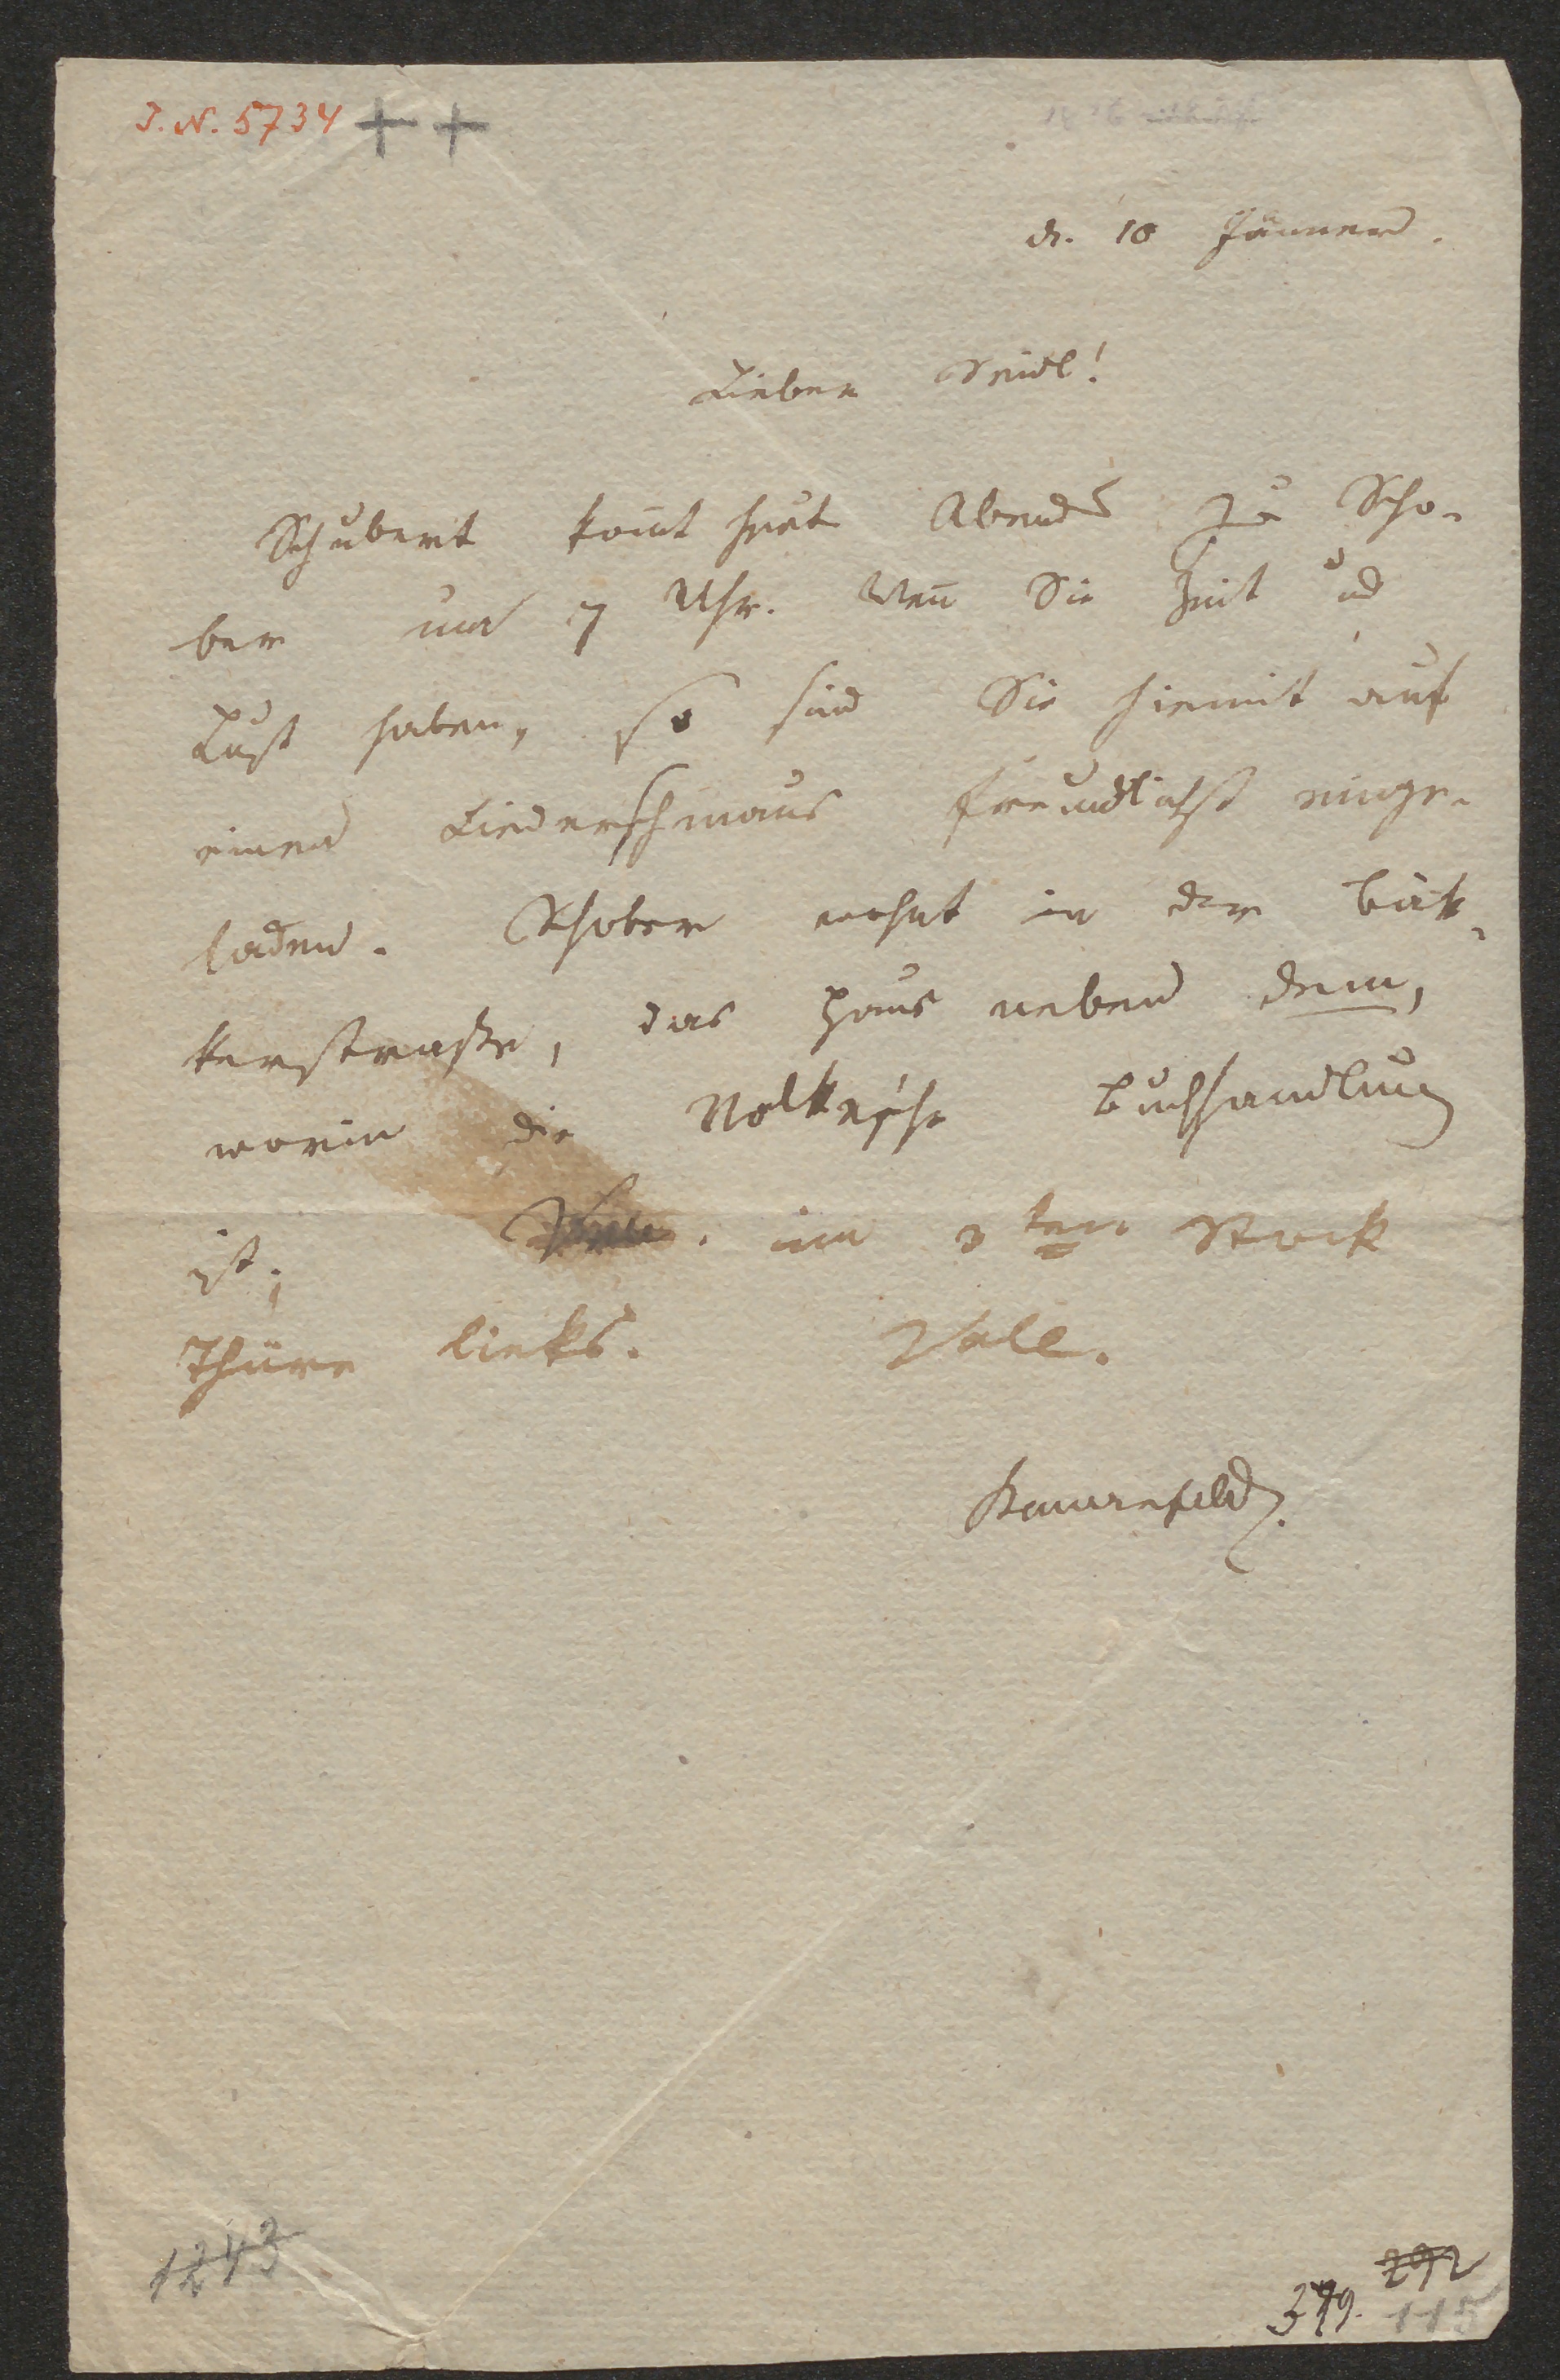 I. N. 5734 ++
d. 10 Jänner.
Lieber Seidl!
Schubert kom̄t heut Abends zu Scho-
ber um 7 Uhr. Wen̄ Sie Zeit ud
Lust haben, so sind Sie hiemit auf
einen Liederschmaus freundlichst einge-
laden. Schober wohnt in der Bäk-
kerstrasse, das Haus neben dem,
worin die Volkesche Buchhandlung
ist; im 3ten Stock
Thüre links. Vale.
Bauernfeld.
1243
292
379. 115